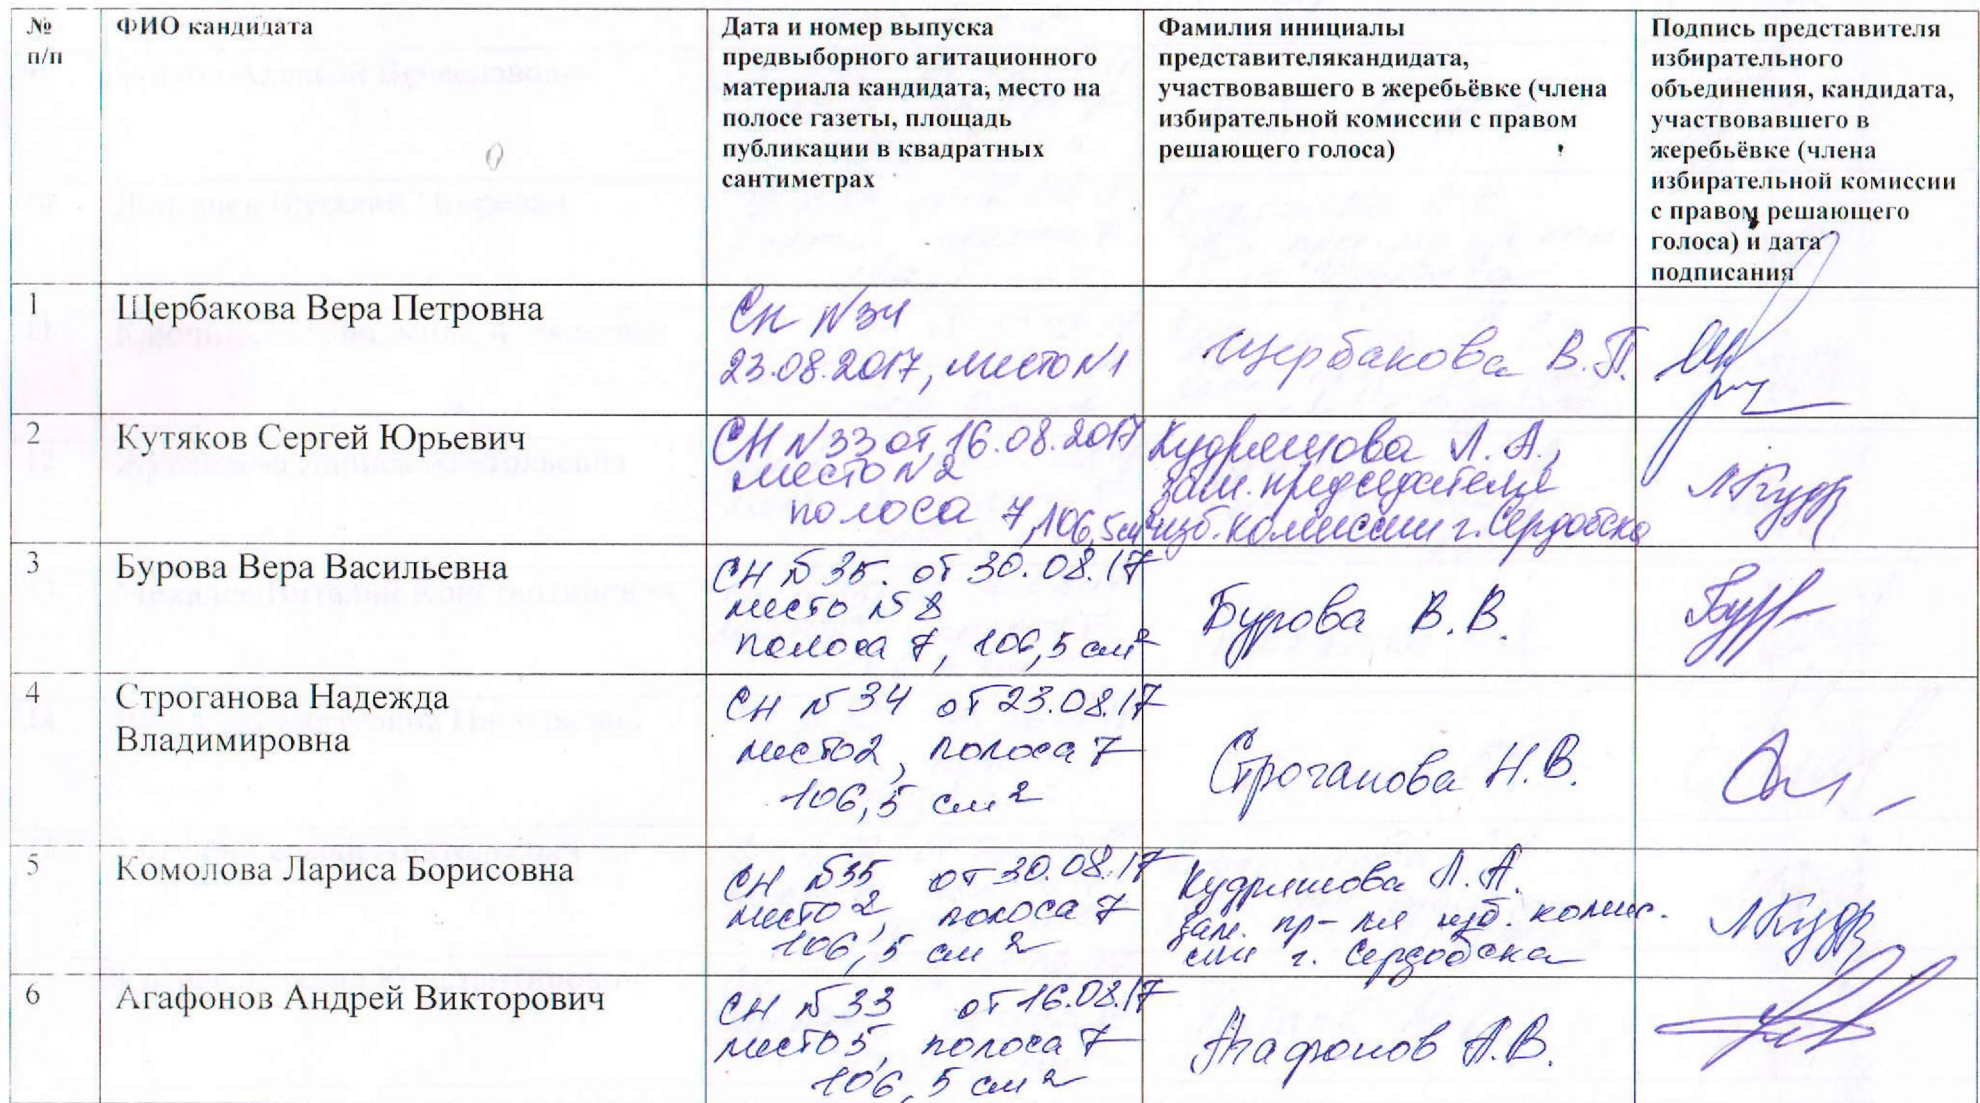 №
п/п
ФИО кандидата
Дата и номер выпуска
предвыборного агитационного
материала кандидата, место на
полосе газеты, площадь
публикации в квадратных
сантиметрах
Фамилия инициалы
представителякандидата,
участвовавшего в жеребьёвке (члена
избирательной комиссии с правом
решающего голоса)
Подпись представителя
избирательного
объединения, кандидата,
участвовавшего в
жеребьёвке (члена
избирательной комиссии
с правом решающего
голоса) и дата
подписания
1
Щербакова Вера Петровна
СН №34
23.08.2017, место №1
Щербакова В.П.
2
Кутяков Сергей Юрьевич
СН №33 от 16.08.2017
место №2
полоса 7, 106,5 см²
Кудряшова Л.А.,
зам. председателя
изб. комиссии г. Сердобска
ЛКудр
3
Бурова Вера Васильевна
СН №35. от 30.08.17
место №8
полоса 7, 106,5 см²
Бурова В.В.
4
Строганова Надежда
Владимировна
СН №34 от 23.08.17
место 2, полоса 7
106,5 см²
Строганова Н.В.
5
Комолова Лариса Борисовна
СН №35 от 30.08.17
место 2, полоса 7
106,5 см²
Кудряшова Л.А.
зам. пр-ля изб. комис.
сии г. Сердобска
ЛКудр
6
Агафонов Андрей Викторович
СН №33 от 16.08.17
место 5, полоса 7
106,5 см²
Агафонов А.В.